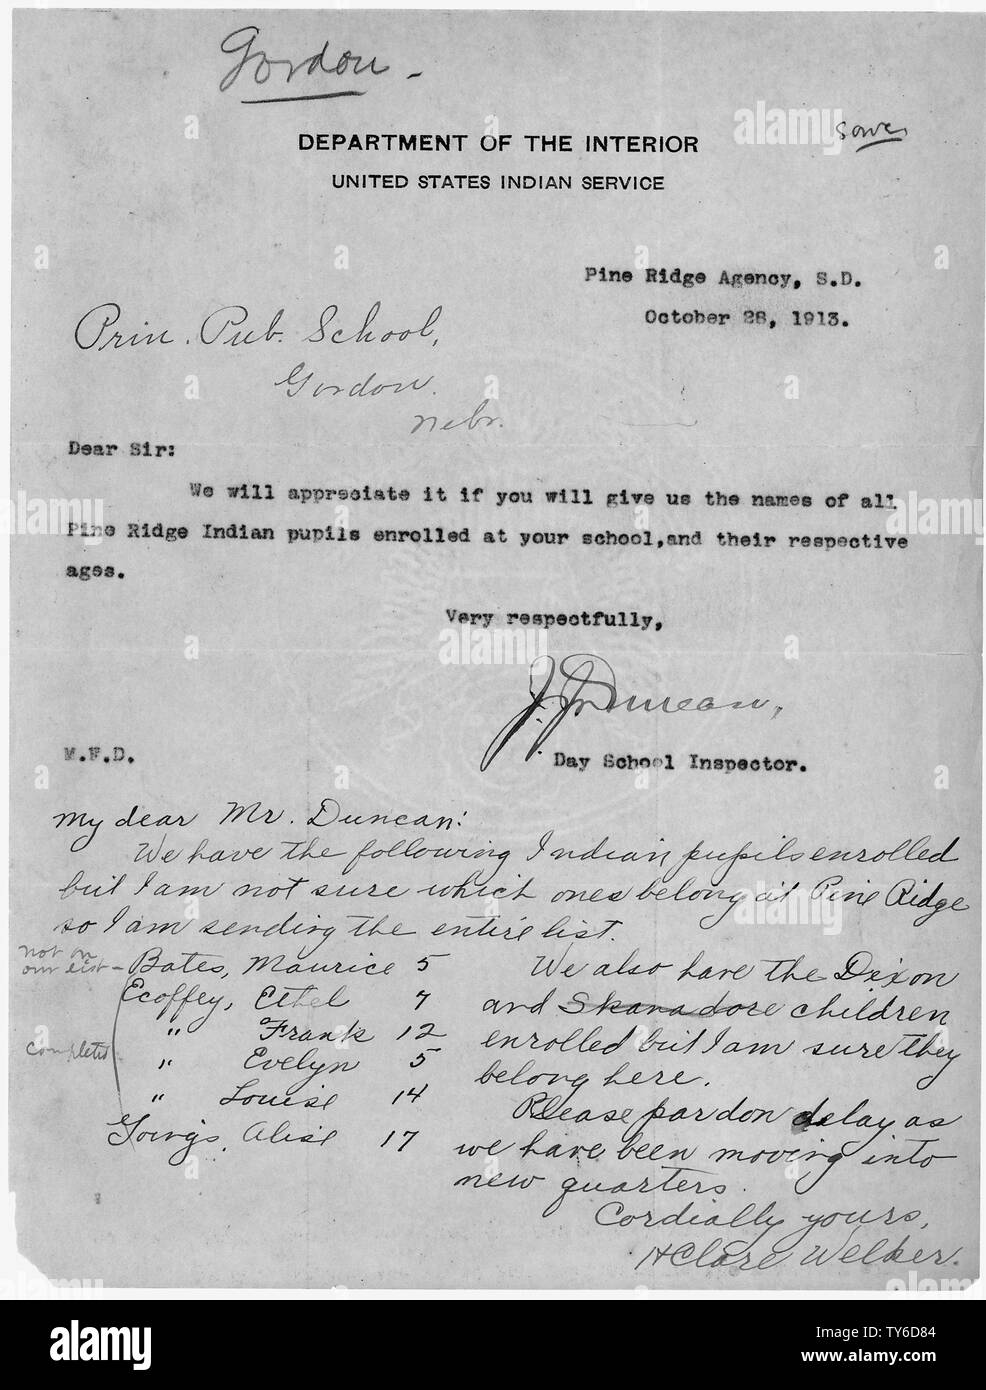 Gordon -
DEPARTMENT OF THE INTERIOR
save
UNITED STATES INDIAN SERVICE
Pine Ridge Agency, S.D.
October 28, 1913.
Prin. Pub. School,
Gordon.
Nebr.
Dear Sir:
We will appreciate it if you will give us the names of all
Pine Ridge Indian pupils enrolled at your school,and their respective
ages.
Very respectfully,
J. J. Duncan,
M.F.D.
Day School Inspector.
My dear Mr. Duncan:
We have the following Indian pupils enrolled
but I am not sure which ones belong at Pine Ridge
so I am sending the entire list.
not on
our list - Bates, Maurice 5
Ecoffey, Ethel 7
" Frank 12
completed " Evelyn 5
" Louise 14
Alise 17
We also have the Dixon
and Skanadore children
enrolled but I am sure they
belong here.
Please pardon delay as
we have been moving into
new quarters.
Cordially yours,
H Clare Welker.
alamy
Image ID: TY6D84
www.alamy.com